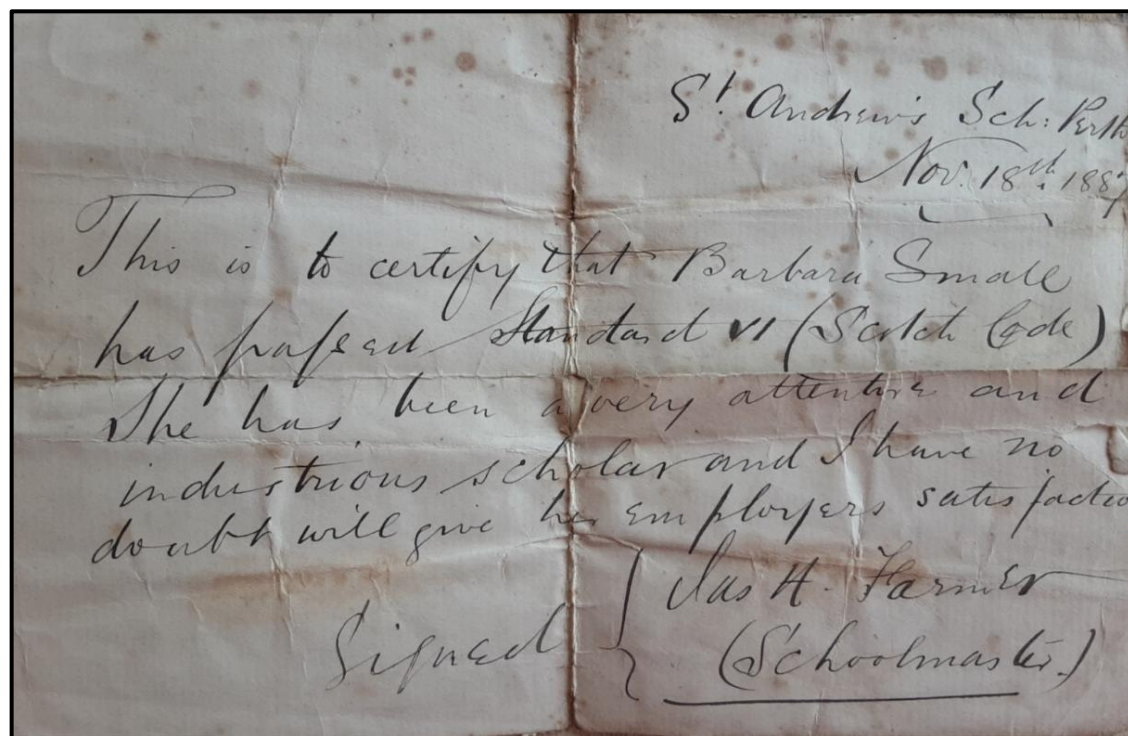 St. Andrew's Sch: Perth
Nov. 18th. 1887
This is to certify that Barbara Small
has passed Standard VI (Scotch Code)
She has been a very attentive and
industrious scholar and I have no
doubt will give her employers satisfactio
Jas H. Farmer
Signed (Schoolmaster.)